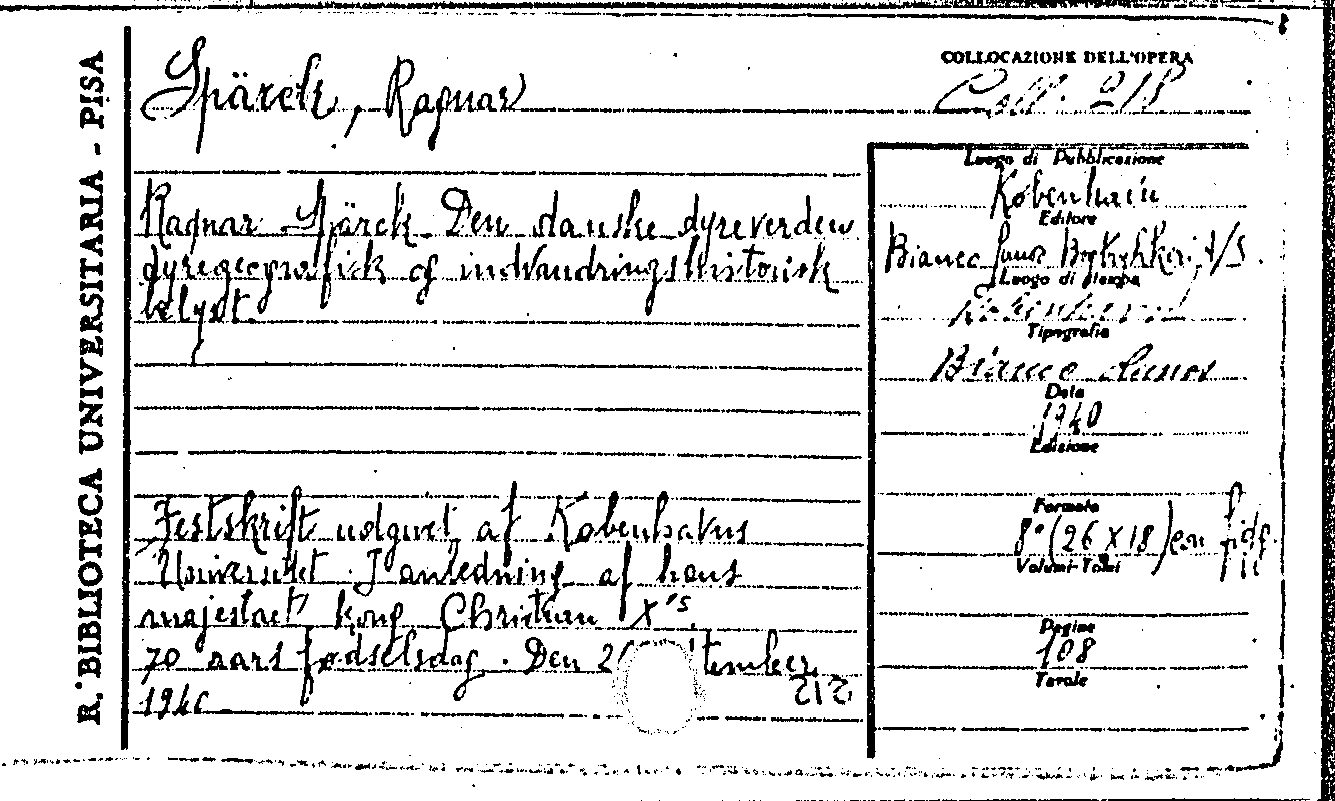 R.ª BIBLIOTECA UNIVERSITARIA - PISA
COLLOCAZIONE DELL'OPERA
Spärck, Ragnar
Coll. 218
Ragnar Spärck Den danske dyreverden
dyregeografisk og indvandringshistorisk
belyst.
Festskrift udgivet af Københavns
Universitet. I anledning af hans
majestaet kong Christian X's
70 aars fødselsdag. Den 2 tember
1940
212
Luogo di Pubblicazione
København
Editore
Bianco Lunos A/S.
Luogo di stampa
København
Tipografia
Bianco Lunos
Data
1940
Edizione
Formato
8° (26 X 18) con figg.
Volumi-Tomi
Pagine
108
Tavole